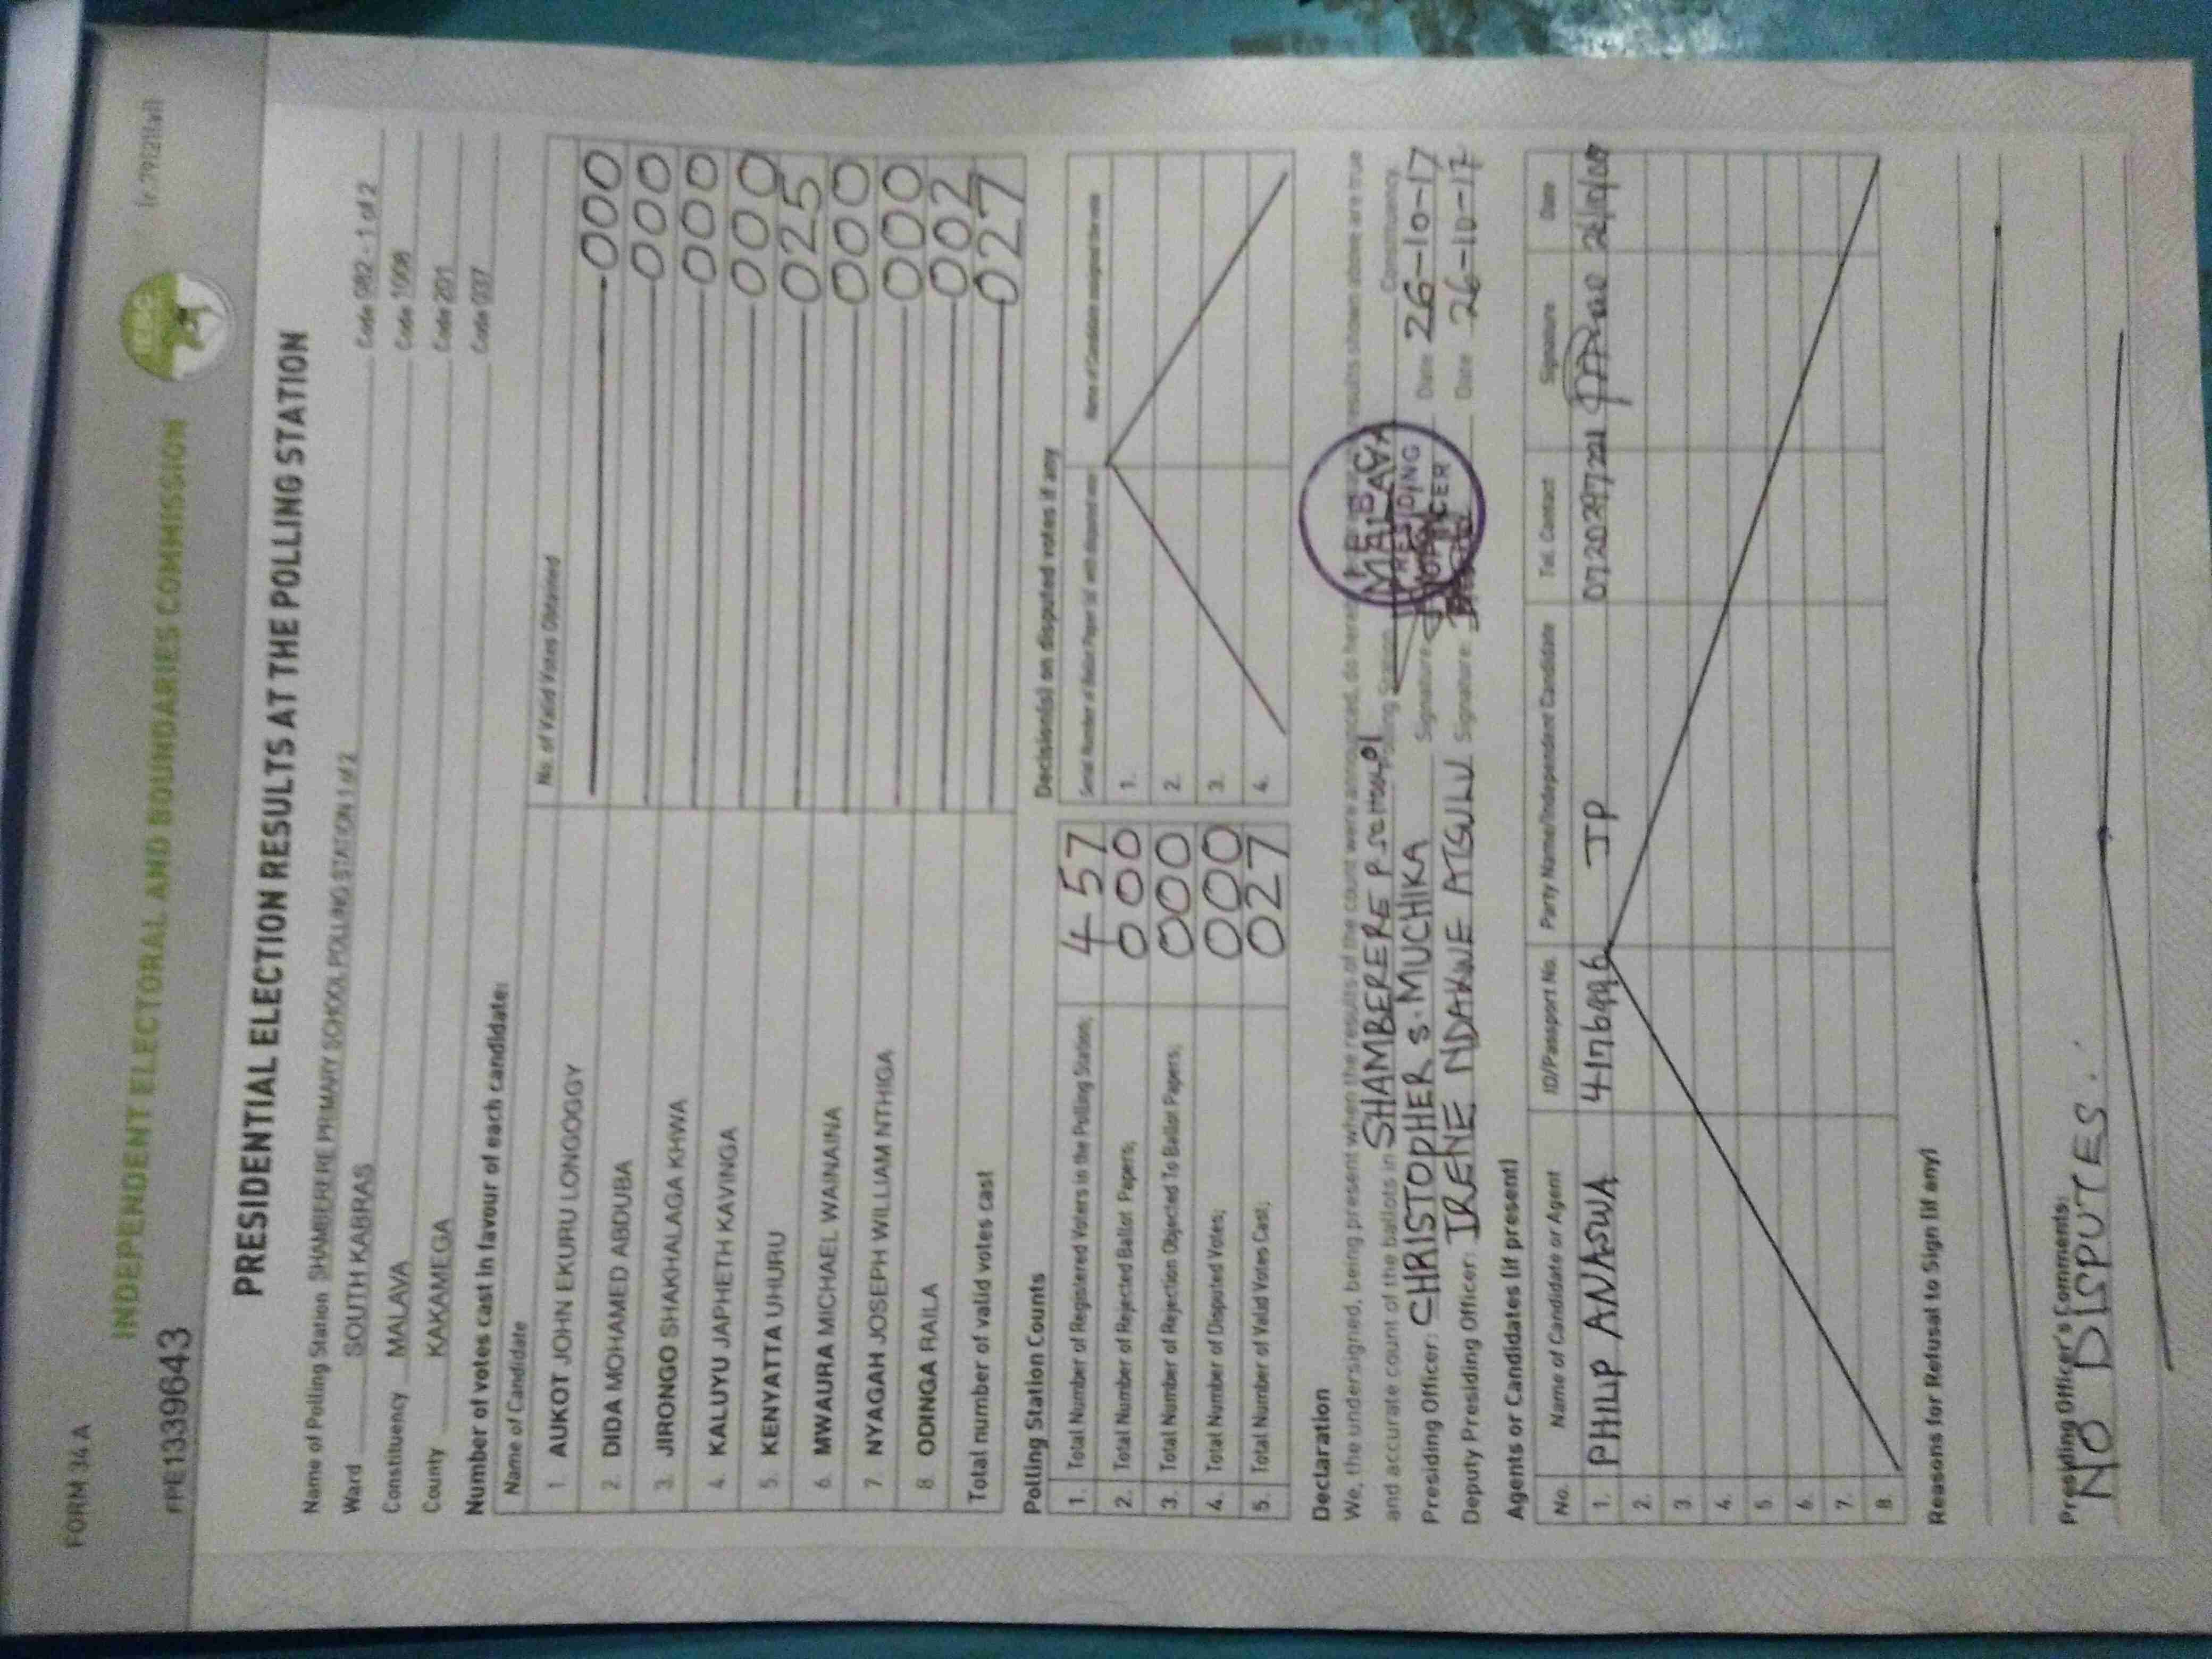 FORM 34 A
INDEPENDENT ELECTORAL AND BOUNDARIES COMMISSION
IEBC
PRESIDENTIAL ELECTION RESULTS AT THE POLLING STATION
Name of Polling Station SHAMBERERE PRIMARY SCHOOL POLLING STATION 1 of 2 Code 982 - 1 of 2
Ward SOUTH KABRAS Code 1008
Constituency MALAVA Code 201
County KAKAMEGA Code 037
Number of votes cast in favour of each candidate:
Name of Candidate No. of Valid Votes Obtained
1. AUKOT JOHN EKURU LONGOGGY 000
2. DIDA MOHAMED ABDUBA 000
3. JIRONGO SHAKHALAGA KHWA 000
4. KALUYU JAPHETH KAVINGA 000
5. KENYATTA UHURU 025
6. MWAURA MICHAEL WAINAINA 000
7. NYAGAH JOSEPH WILLIAM NTHIGA 000
8. ODINGA RAILA 002
Total number of valid votes cast 027
Polling Station Counts
1. Total Number of Registered Voters in the Polling Station; 457
2. Total Number of Rejected Ballot Papers; 000
3. Total Number of Rejection Objected To Ballot Papers; 000
4. Total Number of Disputed Votes; 000
5. Total Number of Valid Votes Cast; 027
Decision(s) on disputed votes if any
Serial Number of Ballot Paper (s) with disputed vote Name of Candidate assigned the vote
1.
2.
3.
4.
Declaration
We, the undersigned, being present when the results of the count were announced, do hereby results shown above are true
and accurate count of the ballots in SHAMBERERE P. SCHOOL Polling Station Constituency.
Presiding Officer: CHRISTOPHER S. MUCHIKA Signature Date 26-10-17
Deputy Presiding Officer: IRENE NDAKWE Signature: Date 26-10-17
MALAVA
PRESIDING
OFFICER
Agents or Candidates (if present)
No. Name of Candidate or Agent ID/Passport No. Party Name/Independent Candidate Tel. Contact Signature Date
1. PHILIP ANASWA JP
2.
3.
4.
5.
6.
7.
8.
Reasons for Refusal to Sign (if any)
Presiding Officer's Comments:
NO DISPUTES.